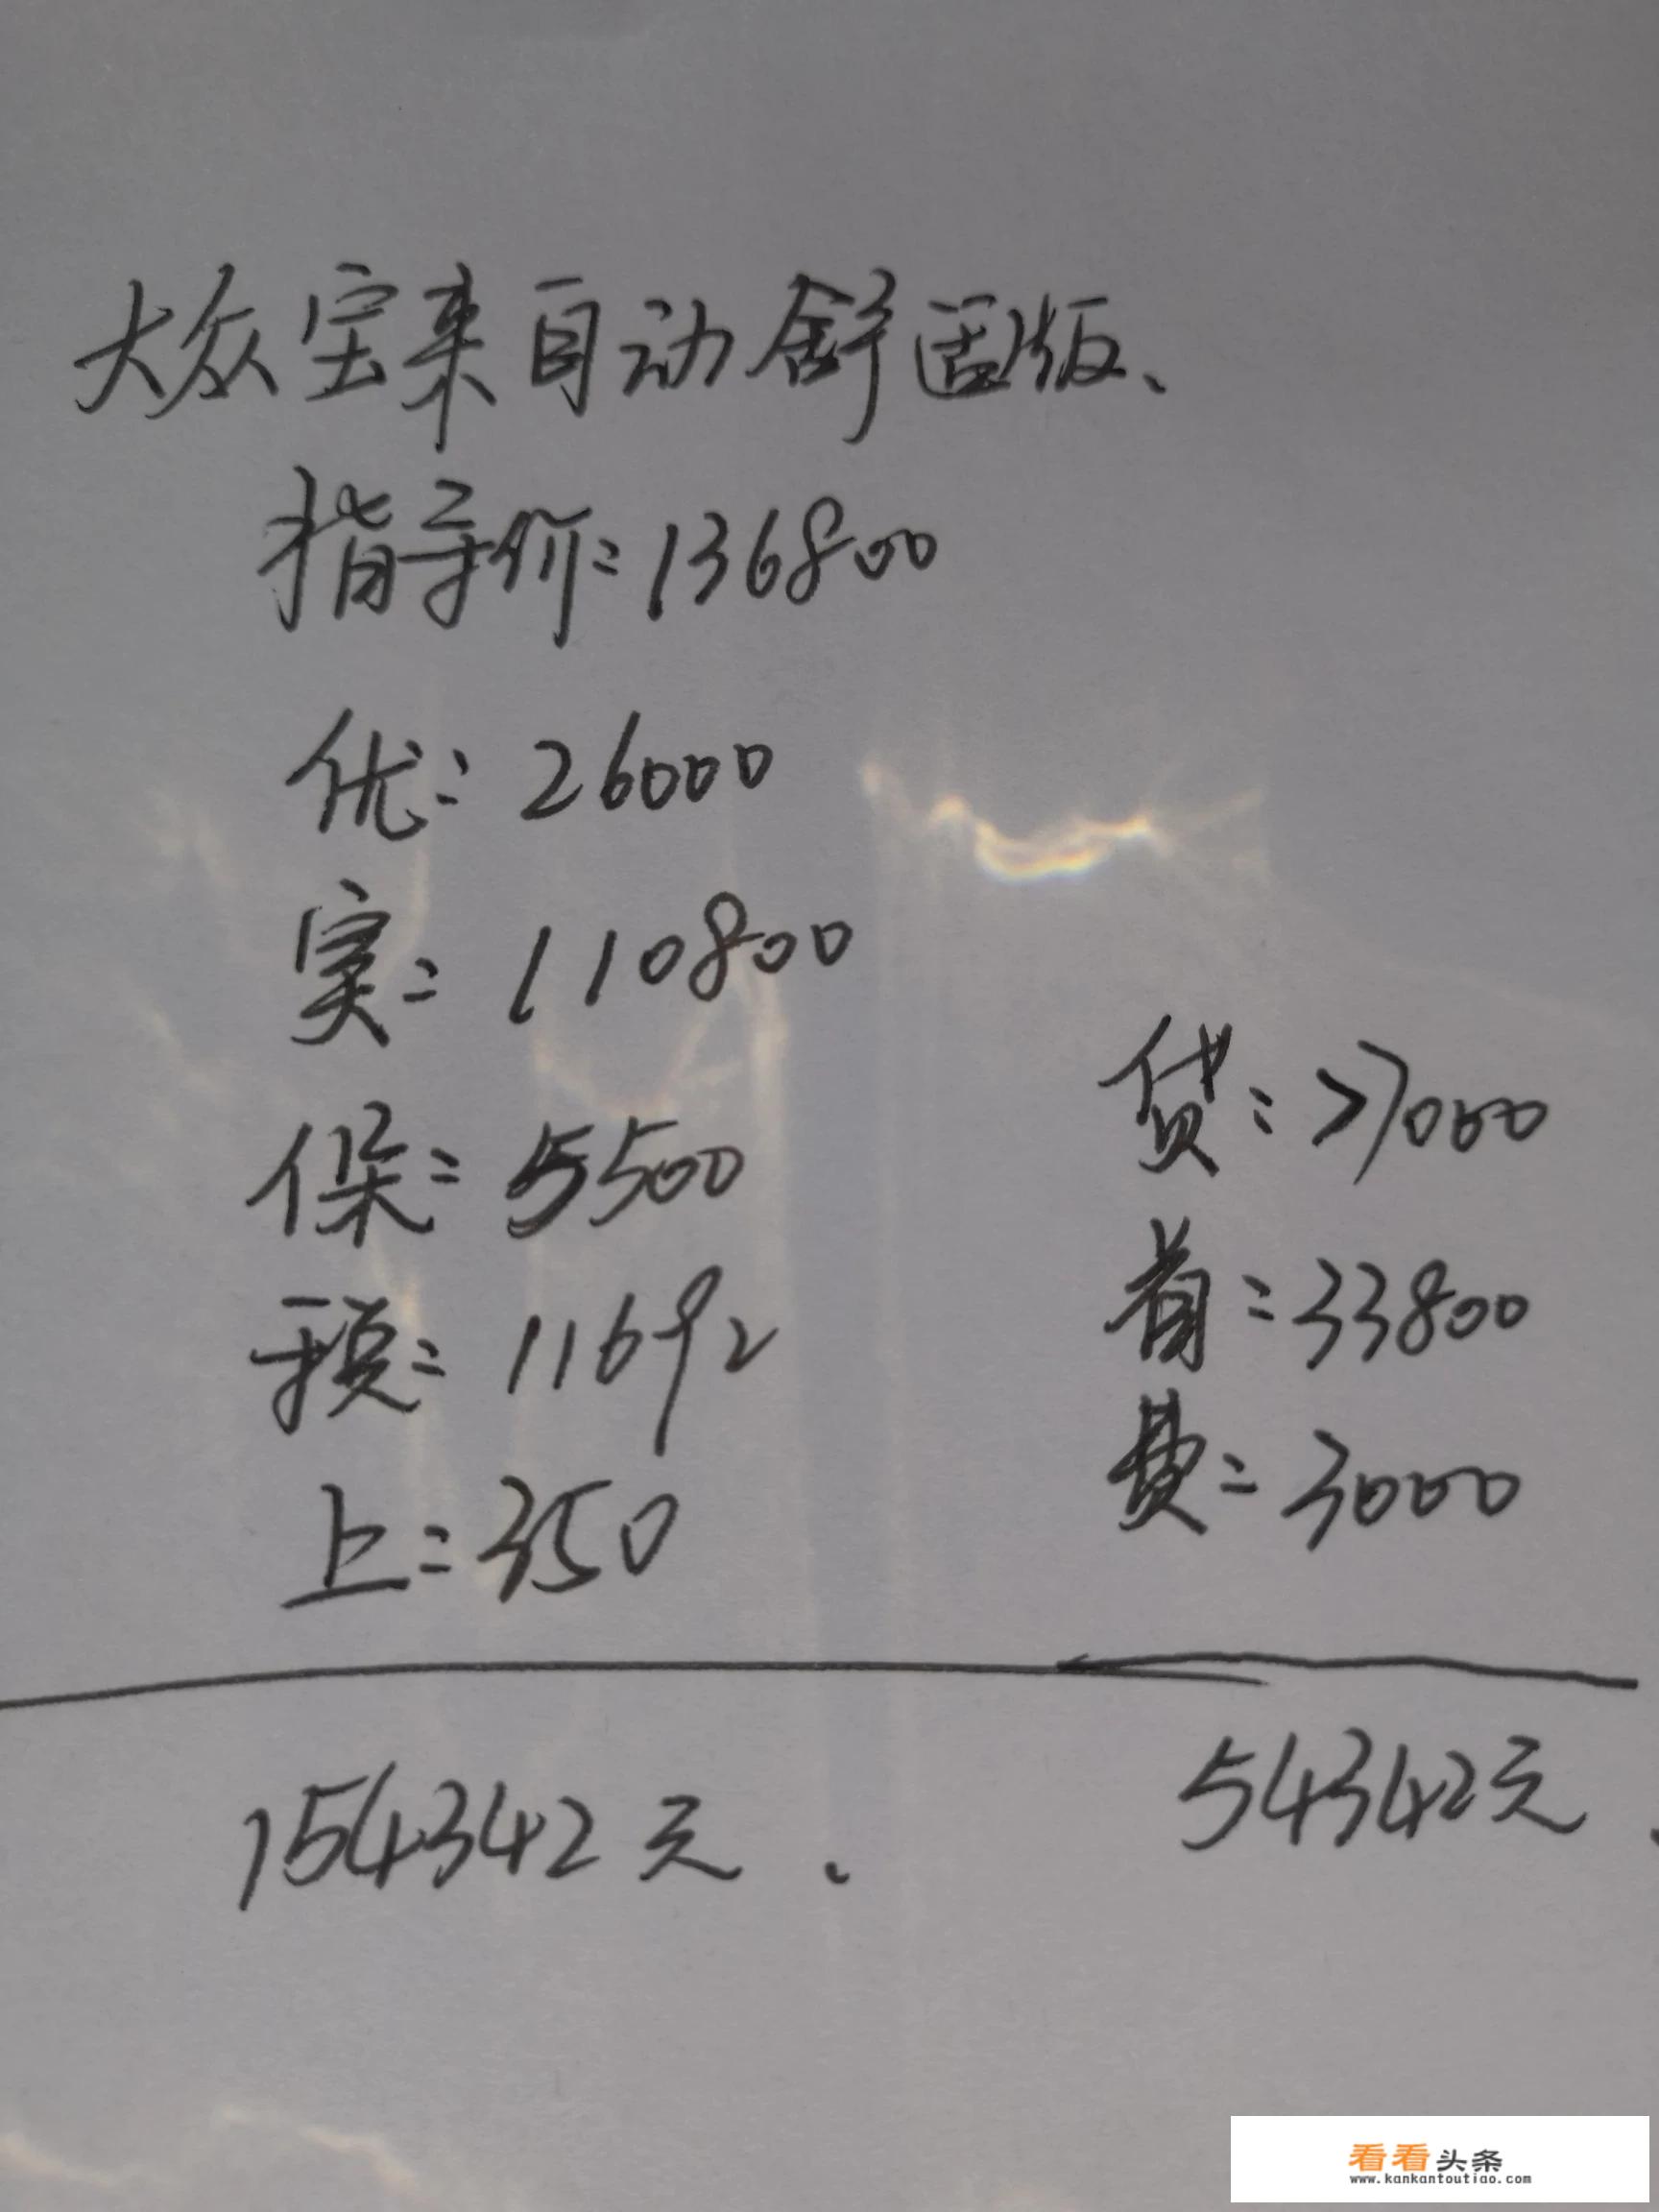 大众宝来自动舒适版、
指导价:136800
优:26000
实:110800
保:5500
税:11692
上:350
154342元.
贷:77000
首:33800
费:3000
54342元.
看看头条
www.kankantoutiao.com